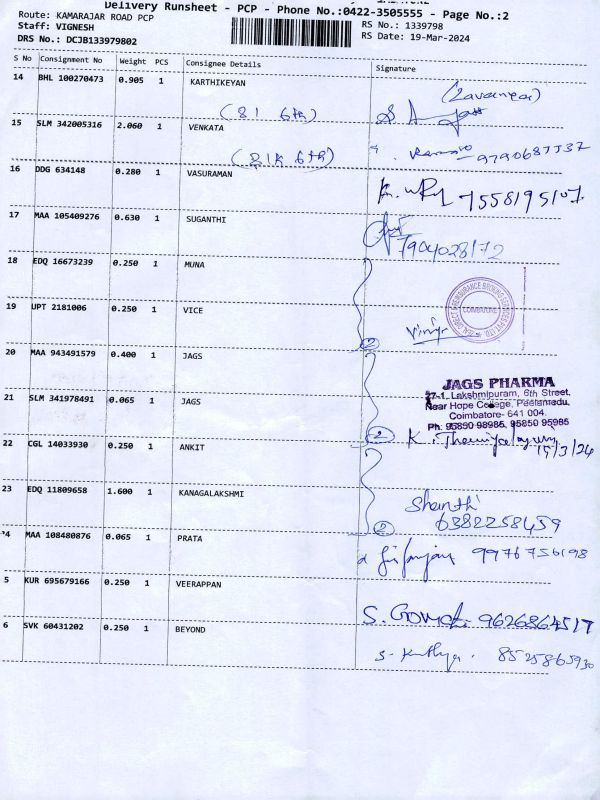 Delivery Runsheet - PCP - Phone No.:0422-3505555 - Page No.:2
Route: KAMARAJAR ROAD PCP
Staff: VIGNESH
DRS No.: DCJB133979802
RS No.: 1339798
RS Date: 19-Mar-2024
S No Consignment No Weight PCS Consignee Details Signature
14 BHL 100270473 0.905 1 KARTHIKEYAN
15 SLM 342005316 2.060 1 VENKATA
16 DDG 634148 0.280 1 VASURAMAN
17 MAA 105409276 0.630 1 SUGANTHI
7904028172
18 EDQ 16673239 0.250 1 MUNA
COIMBATORE
19 UPT 2181006 0.250 1 VICE
2
20 MAA 943491579 0.400 1 JAGS
JAGS PHARMA
27-1, Lakshmipuram, 6th Street,
Near Hope College, Peelamedu,
Coimbatore- 641 004.
Ph: 95850 98985, 95850 95985
21 SLM 341978491 0.065 1 JAGS
2
22 CGL 14033930 0.250 1 ANKIT
23 EDQ 11809658 1.600 1 KANAGALAKSHMI
Shanthi
6382258459
2
24 MAA 108480876 0.065 1 PRATA
9976756198
5 KUR 695679166 0.250 1 VEERAPPAN
9626864517
6 SVK 60431202 0.250 1 BEYOND
8525865930